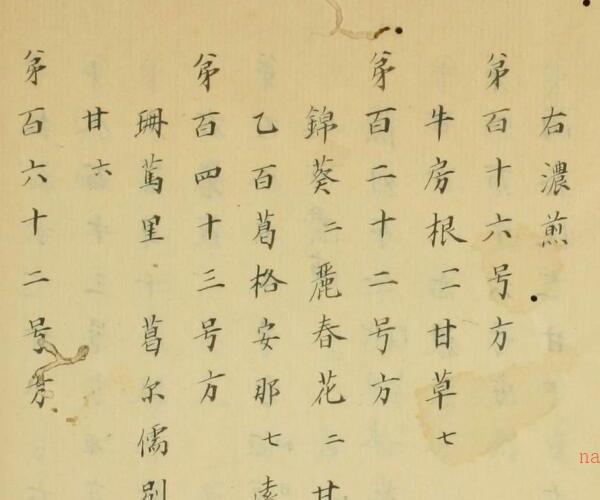 右濃煎
第百十六号方
牛房根二甘草七
第百二十二号方
錦葵二麗春花二甘
乙百葛格安那七
第百四十三号方
珊篤里葛尔儒別
甘六
第百六十二号方
na